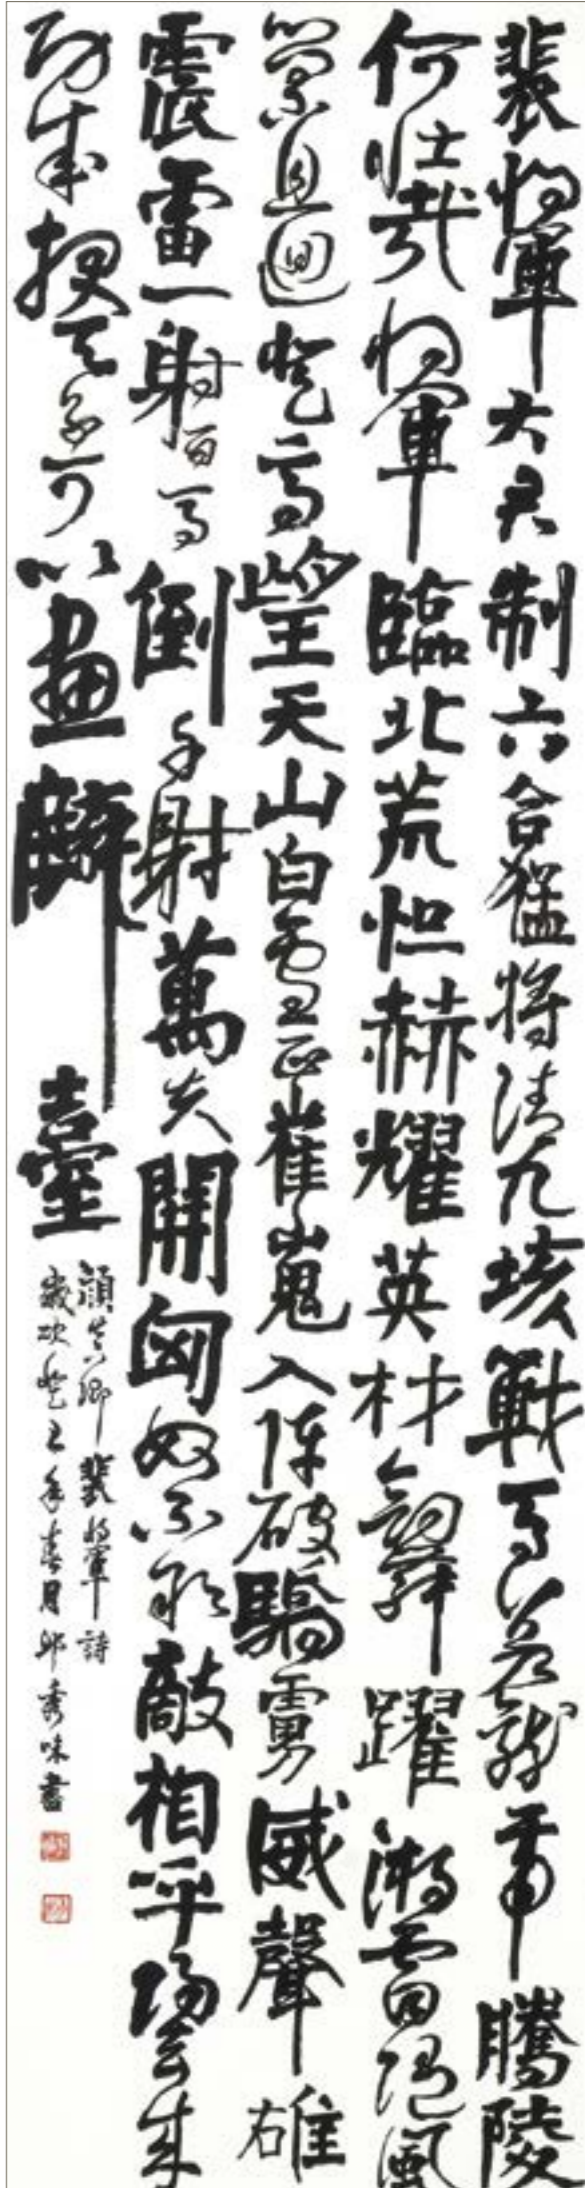 裴将軍大君制六合猛将清九垓戰馬若龍虎騰陵
何壮哉将軍臨北荒怛赫耀英材劍舞躍游雷隨風
縈且迴登高望天山白雲正崔嵬入陣破驕虜威聲雄
震雷一射百馬倒再射萬夫開匈奴不敢敵相呼歸去来
功成報天子可以畫麟臺
顔真卿裴将軍詩
歲次癸年春月邱秀味書